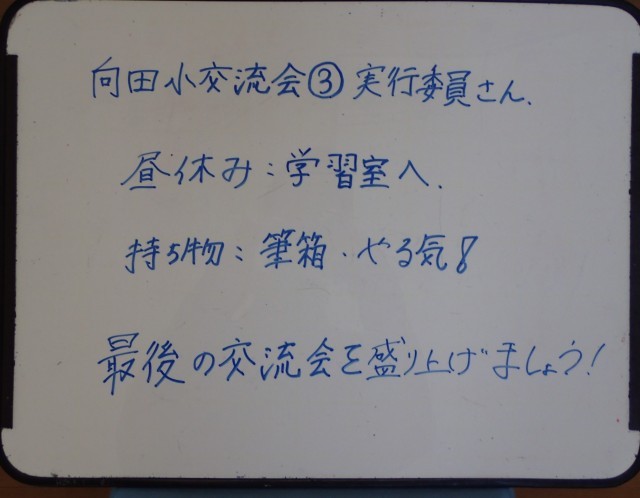 向田小交流会③実行委員さん.
昼休み:学習室へ.
持ち物:筆箱・やる気!
最後の交流会を盛り上げましょう!